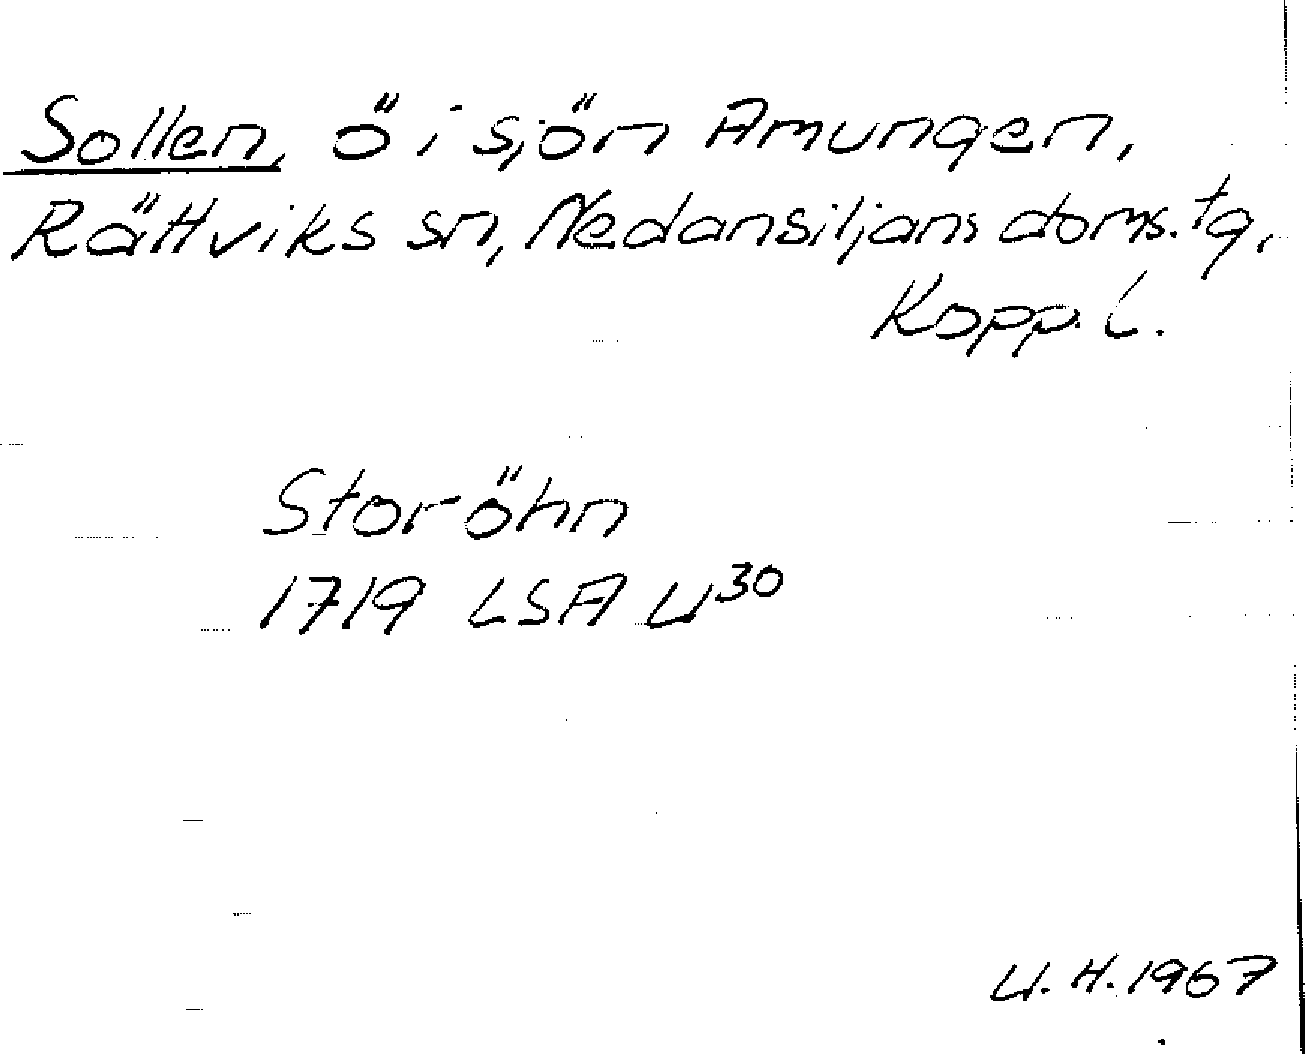 Sollen, ö i sjön Amungen,
Rättviks sn, Nedansiljans doms. tg,
Kopp. l.
Storöhn
1719 LSA U30
U. H. 1967